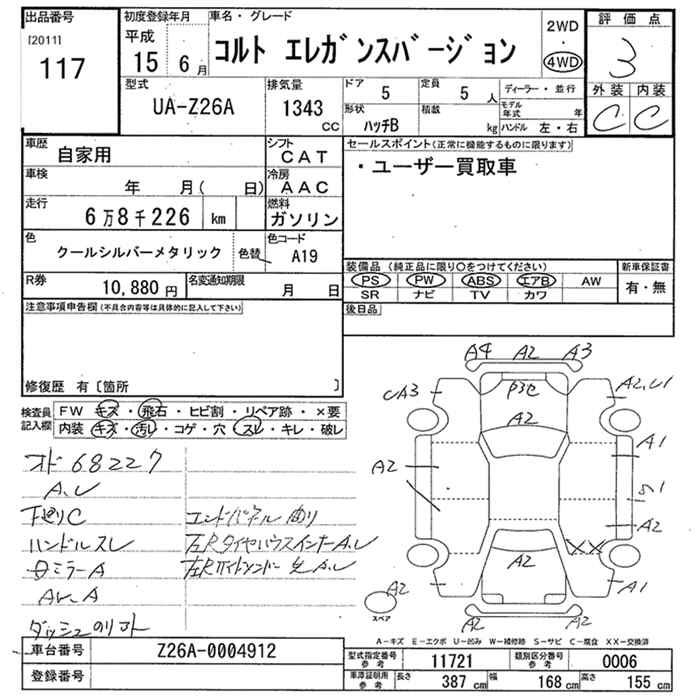 出品番号
[2011]
117
初度登録年月
平成
15年 6月
車名・グレード
コルト エレガンスバージョン
2WD
・
4WD
評価点
3
外装 内装
C C
型式
UA-Z26A
排気量
1343 cc
ドア
5
定員
5 人
形状
ハッチB
積載
kg
ディーラー・並行
モデル年式 年
ハンドル 左・右
車歴
自家用
シフト
CAT
車検
年 月( 日)
冷房
AAC
走行
6万8千226 km
燃料
ガソリン
色
クールシルバーメタリック
色替
色コード
A19
R券
10,880 円
名変通知期限
月 日
セールスポイント(正常に機能するものに限ります)
・ユーザー買取車
装備品(純正品に限り○をつけてください)
PS PW ABS エアB AW
SR ナビ TV カワ
新車保証書
有・無
後日品
注意事項申告欄(不具合内容等は具体的に記入して下さい)
修復歴 有〔箇所 〕
検査員記入欄
FW キズ・飛石・ヒビ割・リペア跡・×要
内装 キズ・汚レ・コゲ・穴・スレ・キレ・破レ
オド 68227
A.U
下廻りC
ハンドルスレ
エンドパネル曲り
左Rタイヤハウスインナー A.U
ミラーA
A.U
ダッシュ
A4 A2 A3
A3
P3
A2,U1
A2
A1
A2
S1
A2
XX
A2
A1
A2
スペア
A2 A2
A-キズ E-エクボ U-凹み W-補修跡 S-サビ C-腐食 XX-交換済
車台番号
Z26A-0004912
登録番号
型式指定番号 参考
11721
類別区分番号 参考
0006
車庫証明用 参考
長さ 387 cm
幅 168 cm
高さ 155 cm